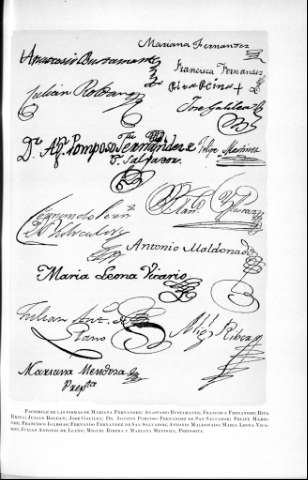 Mariana Fernandez
Anastasio Bustamante
Francisca Fernandez
Rita Reina
Julian Roldan
Jose Galilea
Dr. Agn. Pomposo Fernandez
Sn. Salvador
Felipe Martinez
Fernando Fern
Antonio Maldonado
Maria Leona Vicario
Julian Ant. de
Llano
Migl. Ribera
Mariana Mendosa
Prepta
Facsímile de las firmas de Mariana Fernández; Anastasio Bustamante; Francisca Fernández; Rita
Reina; Julián Roldán; José Galilea; Dr. Agustín Pomposo Fernández de San Salvador; Felipe Martí-
nez; Francisco Iglesias; Fernando Fernández de San Salvador; Antonio Maldonado; María Leona Vica-
rio; Julián Antonio de Llano; Miguel Ribera y Mariana Mendoza, Preposita.